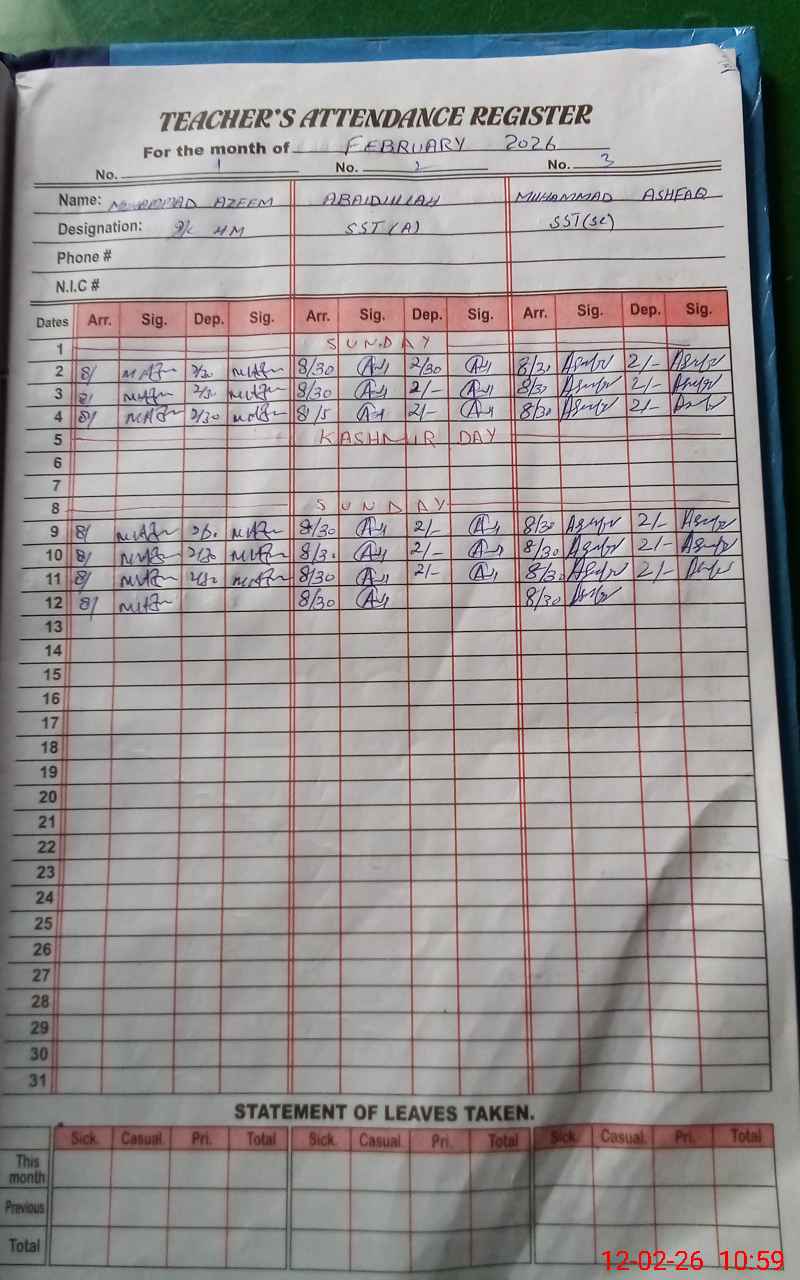 TEACHER'S ATTENDANCE REGISTER
For the month of FEBRUARY 2026
No. 1 No. 2 No. 3
Name: MUHAMMAD AZEEM ABAIDULLAH MUHAMMAD ASHFAQ
Designation: HM SST(A) SST(SC)
Phone #
N.I.C #
Dates Arr. Sig. Dep. Sig. Arr. Sig. Dep. Sig. Arr. Sig. Dep. Sig.
1 SUNDAY
2 8/ 8/30 2/30 8/30 2/-
3 8/ 8/30 2/- 8/30 2/-
4 8/ 2/30 8/5 2/- 8/30 2/-
5 KASHMIR DAY
6
7
8 SUNDAY
9 8/ 8/30 2/- 8/30 2/-
10 8/ 2/30 8/3. 2/- 8/30 2/-
11 8/ 2/30 8/30 2/- 8/30 2/-
12 8/ 8/30 8/30
13
14
15
16
17
18
19
20
21
22
23
24
25
26
27
28
29
30
31
STATEMENT OF LEAVES TAKEN.
Sick. Casual. Pri. Total Sick. Casual Pri. Total Sick. Casual. Pri. Total
This month
Previous
Total
12-02-26 10:59